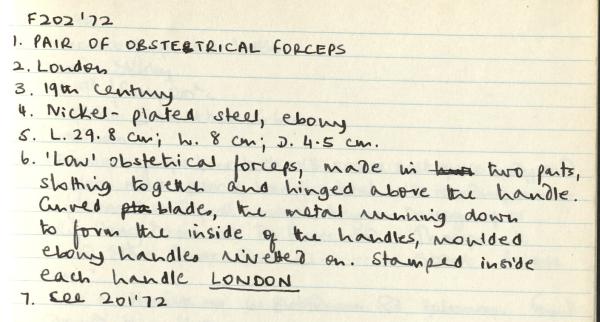 F202'72
1. PAIR OF OBSTETRICAL FORCEPS
2. London
3. 19th Century
4. Nickel-plated steel, ebony
5. L. 29.8 cm; W. 8 cm; D. 4.5 cm.
6. 'Low' obstetrical forceps, made in two parts,
slotting together and hinged above the handle.
Curved blades, the metal running down
to form the inside of the handles, moulded
ebony handles rivetted on. Stamped inside
each handle LONDON
7. see 201'72